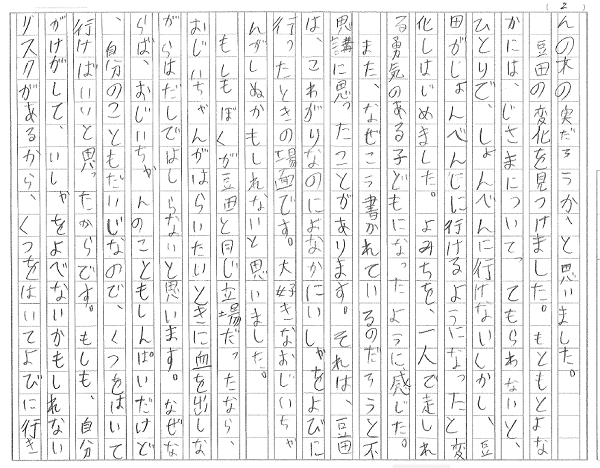 (2)
んの木の実だろうか、と思いました。
豆田の変化を見つけました。もともとよな
かには、じさまについてってもらわないと、
ひとりで、しょんべんに行けないくかし、豆
田がじょんべんじに行けるようになったと変
化しはじめました。よみちを、一人で走しれ
る勇気のある子どもになったように感じた。
また、なぜこう書かれているのだろうと不
思議に思ったことがあります。それは、豆田
は、こわがりなのによなかにいしゃをよびに
行ったときの場面です。大好きなおじいちゃ
んがしぬかもしれないと思いました。
もしもぼくが豆田と同じ立場だったなら、
おじいちゃんがはらいたいときに血を出しな
がらはだしではしらないと思います。なぜな
らば、おじいちゃんのこともしんぱいだけど
、自分のこともだいじなので、くつをはいて
行けばいいと思ったからです。もしも、自分
がけがして、いしゃをよべないかもしれない
リスクがあるから、くつをはいてよびに行き